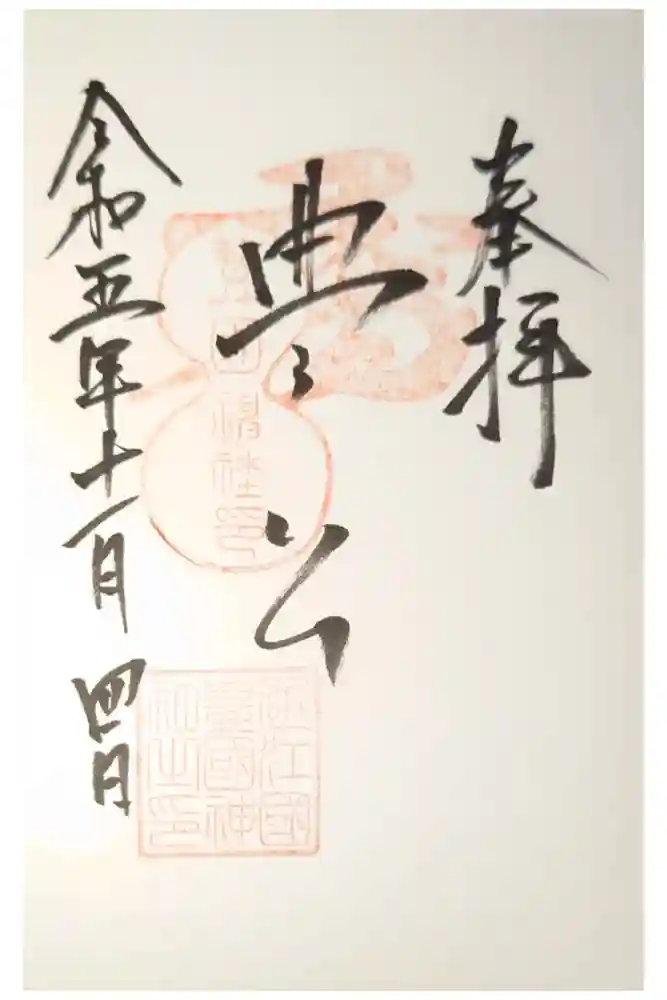 奉拝
豊公
令和五年十一月四日
近江國
豊國神
社之印